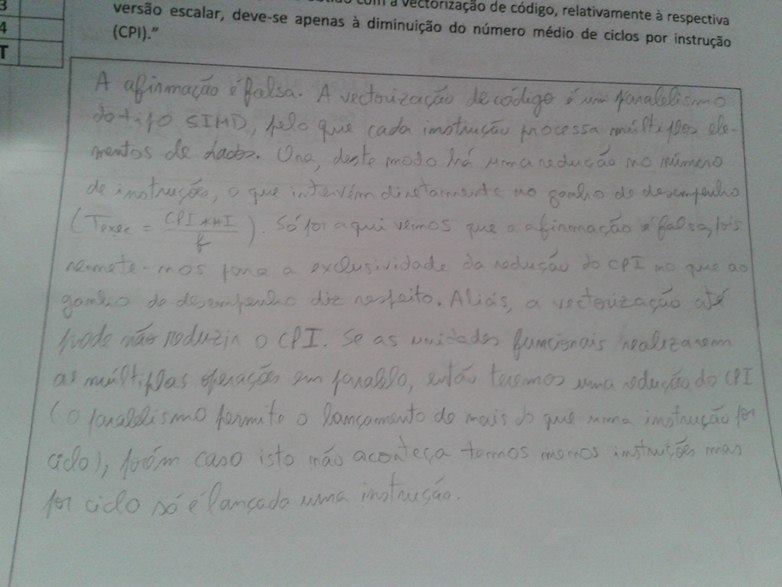 3
4
T
com a vectorização de código, relativamente à respectiva
versão escalar, deve-se apenas à diminuição do número médio de ciclos por instrução
(CPI)."
A afirmação é falsa. A vectorização de código é um paralelismo
do tipo SIMD, pelo que cada instrução processa múltiplos ele-
mentos de dados. Ora, deste modo há uma redução no número
de instruções, o que intervém diretamente no ganho de desempenho
(Texec = CPI * #I / f). Só por aqui vemos que a afirmação é falsa, pois
remete-nos para a exclusividade da redução do CPI no que ao
ganho de desempenho diz respeito. Aliás, a vectorização até
pode não reduzir o CPI. Se as unidades funcionais realizarem
as múltiplas operações em paralelo, então teremos uma redução do CPI
(o paralelismo permite o lançamento de mais do que uma instrução por
ciclo), porém caso isto não aconteça temos menos instruções mas
por ciclo só é lançada uma instrução.